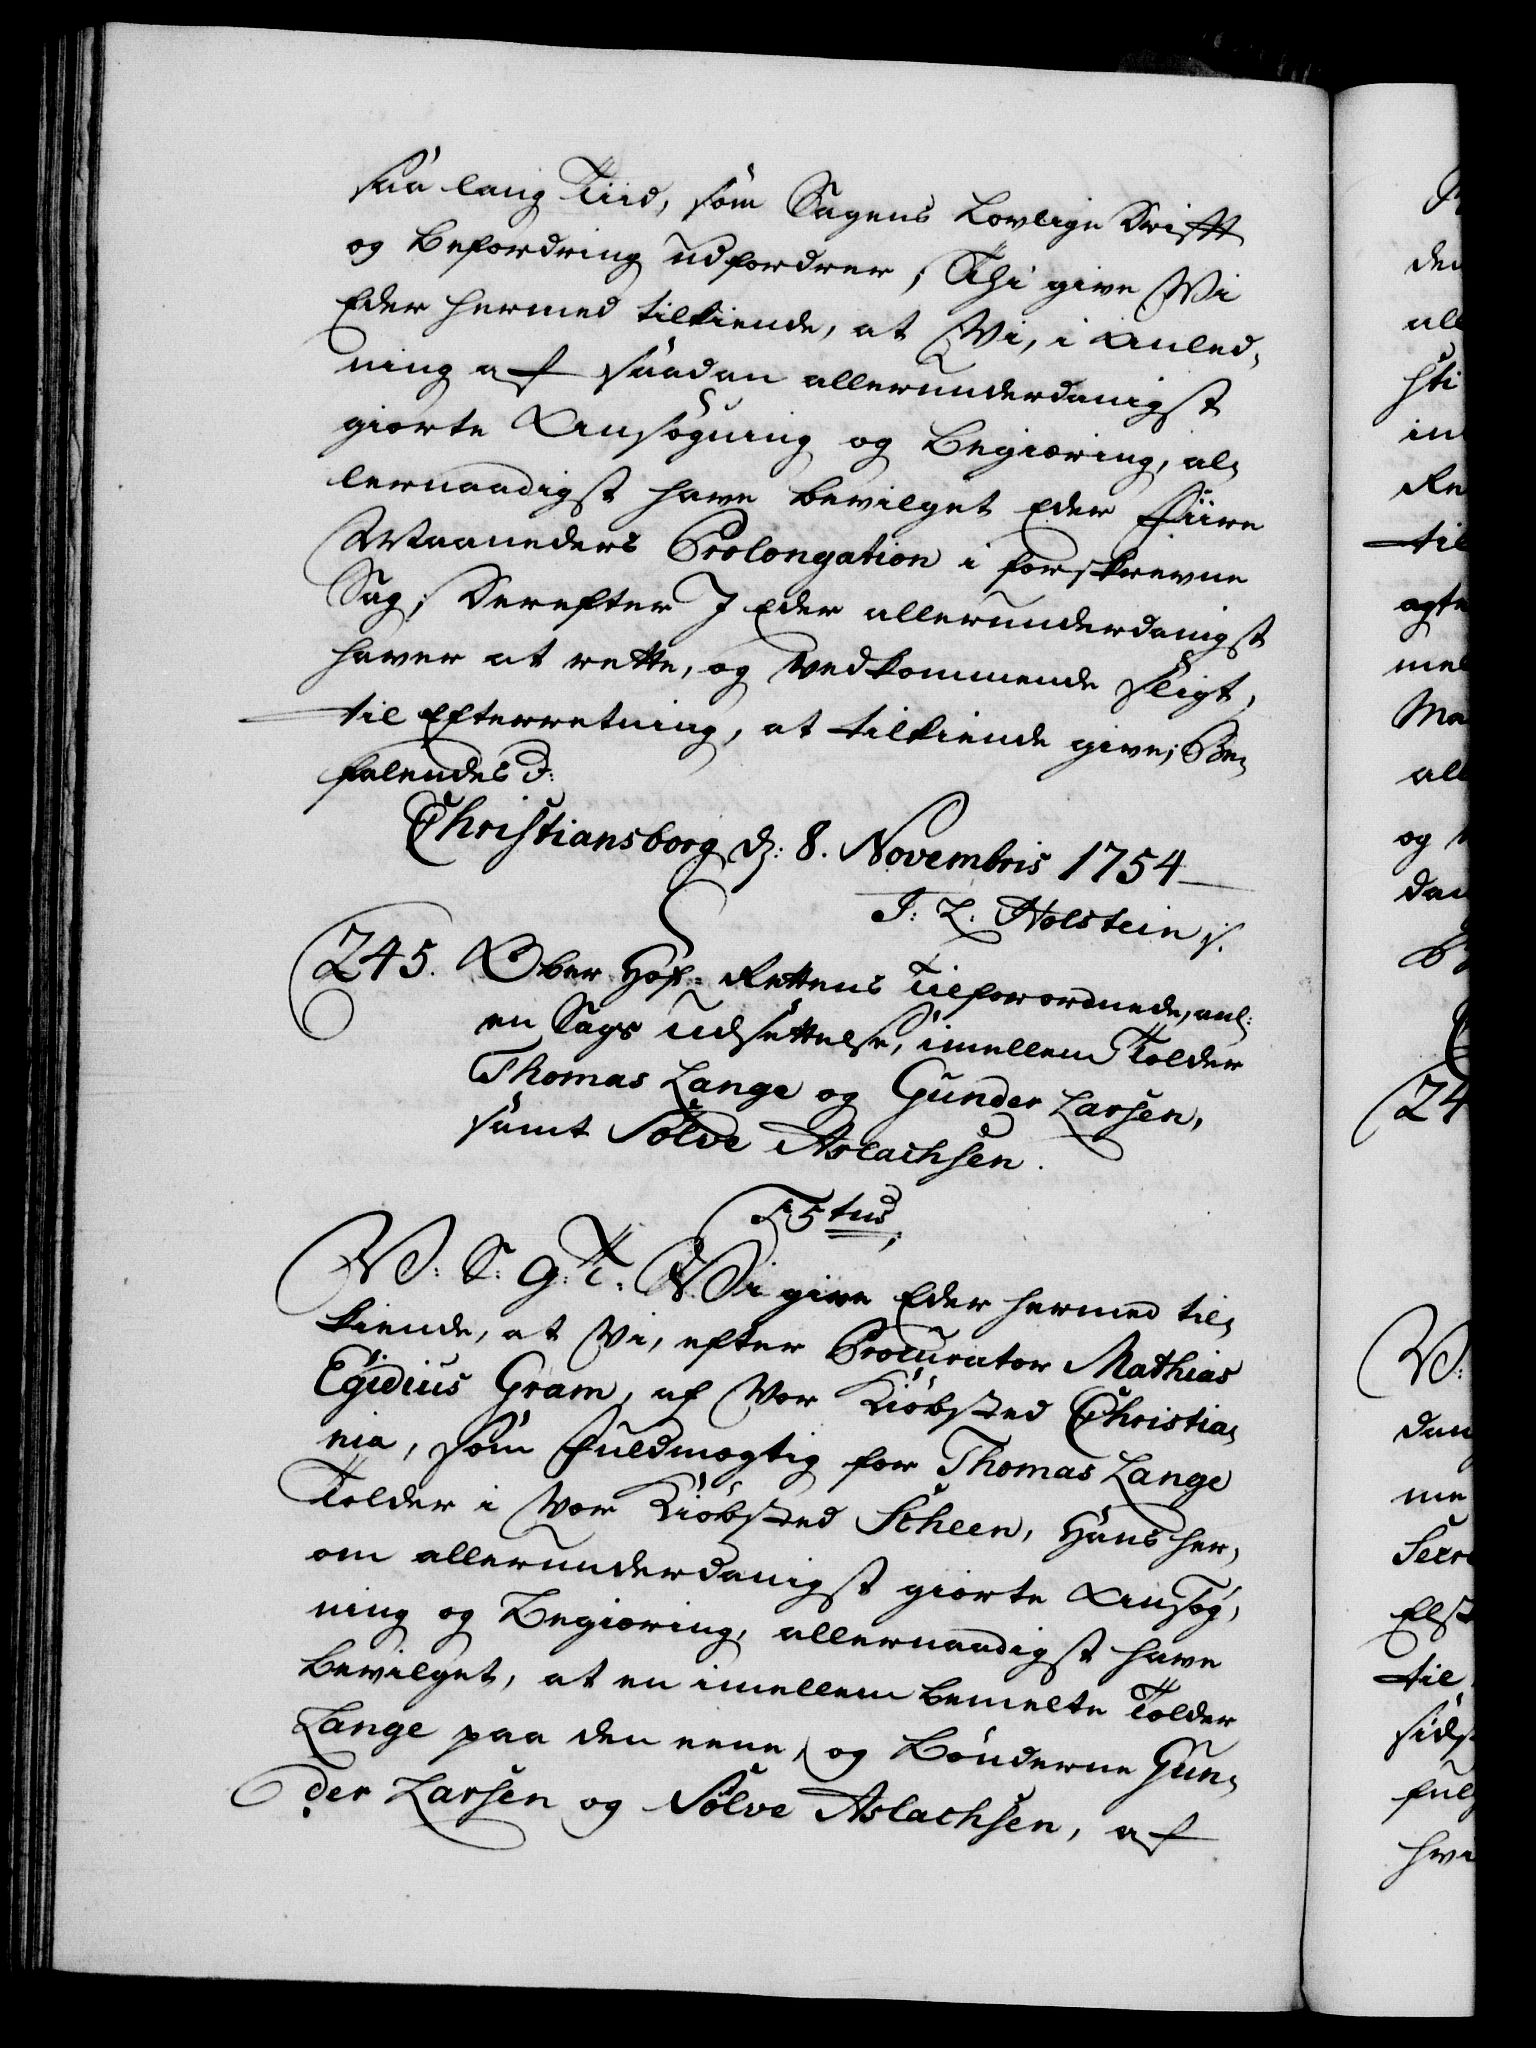 saa lang Tiid, som Sagens Lovlige Drifft
og Befordring udfordrer; Thi give Wi
Eder hermed tilkiende, at Wi, i Anled-
ning af saadan allerunderdanigst
giorte Ansøgning og Begiæring, al-
lernaadigst have bevilget Eder Fiire
Maaneders Prolongation i forskrevne
Sag; Derefter I Eder allerunderdanigst
haver at rette, og vedkommende sligt,
til Efterretning, at tilkiende give; Be-
falendes d:
Christiansborg d: 8. Novembris 1754
J: L. Holstein
245. Ober Hof-Rettens Tilforordnede, anl:
en Sags Udsettelse, imellem Tolder
Thomas Lange og Gunder Larsen,
samt Sølve Aslachsen.
Titus;
W: S: G: T: Wi give Eder hermed til-
kiende, at Wi, efter Procurator Mathias
Egidius Gram, af Vor Kiøbsted Christia-
nia, som Fuldmægtig for Thomas Lange
Tolder i Vor Kiøbsted Scheen, Hans her-
om allerunderdanigst giorte Ansøg-
ning og Begiæring, allernaadigst have
bevilget, at en imellem bemelte Tolder
Lange paa den eene, og Bønderne Gun-
der Larsen og Sølve Aslachsen, af